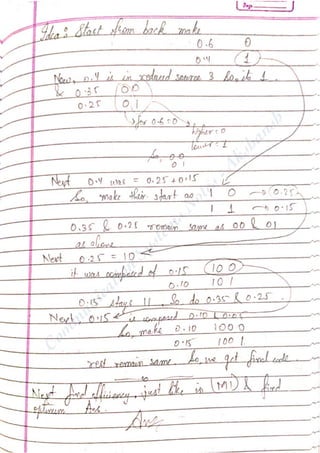 Idea: Start from back make
0.6 0
0.4 1
Now, 0.4 is in reduced source 3 so, it's 1
& 0.35 00
0.25 01
for 0.6 = 0
higher = 0
lower = 1
So, 00
01
Next 0.4 was = 0.25 + 0.15
So, make their start as
1 0 → 0.25
1 1 → 0.15
0.35 & 0.25 remain same as 00 & 01
as above
Next 0.25 = 10
it was composed of 0.15 100
0.10 101
0.15 stays 11. So do 0.35 & 0.25.
Next, 0.15 is composed 0.10 & 0.05
So, make 0.10 1000
0.15 1001
rest remain same. So, we get final code.
Next find efficiency, just like in (M1) & find
optimum Ans.
Ans